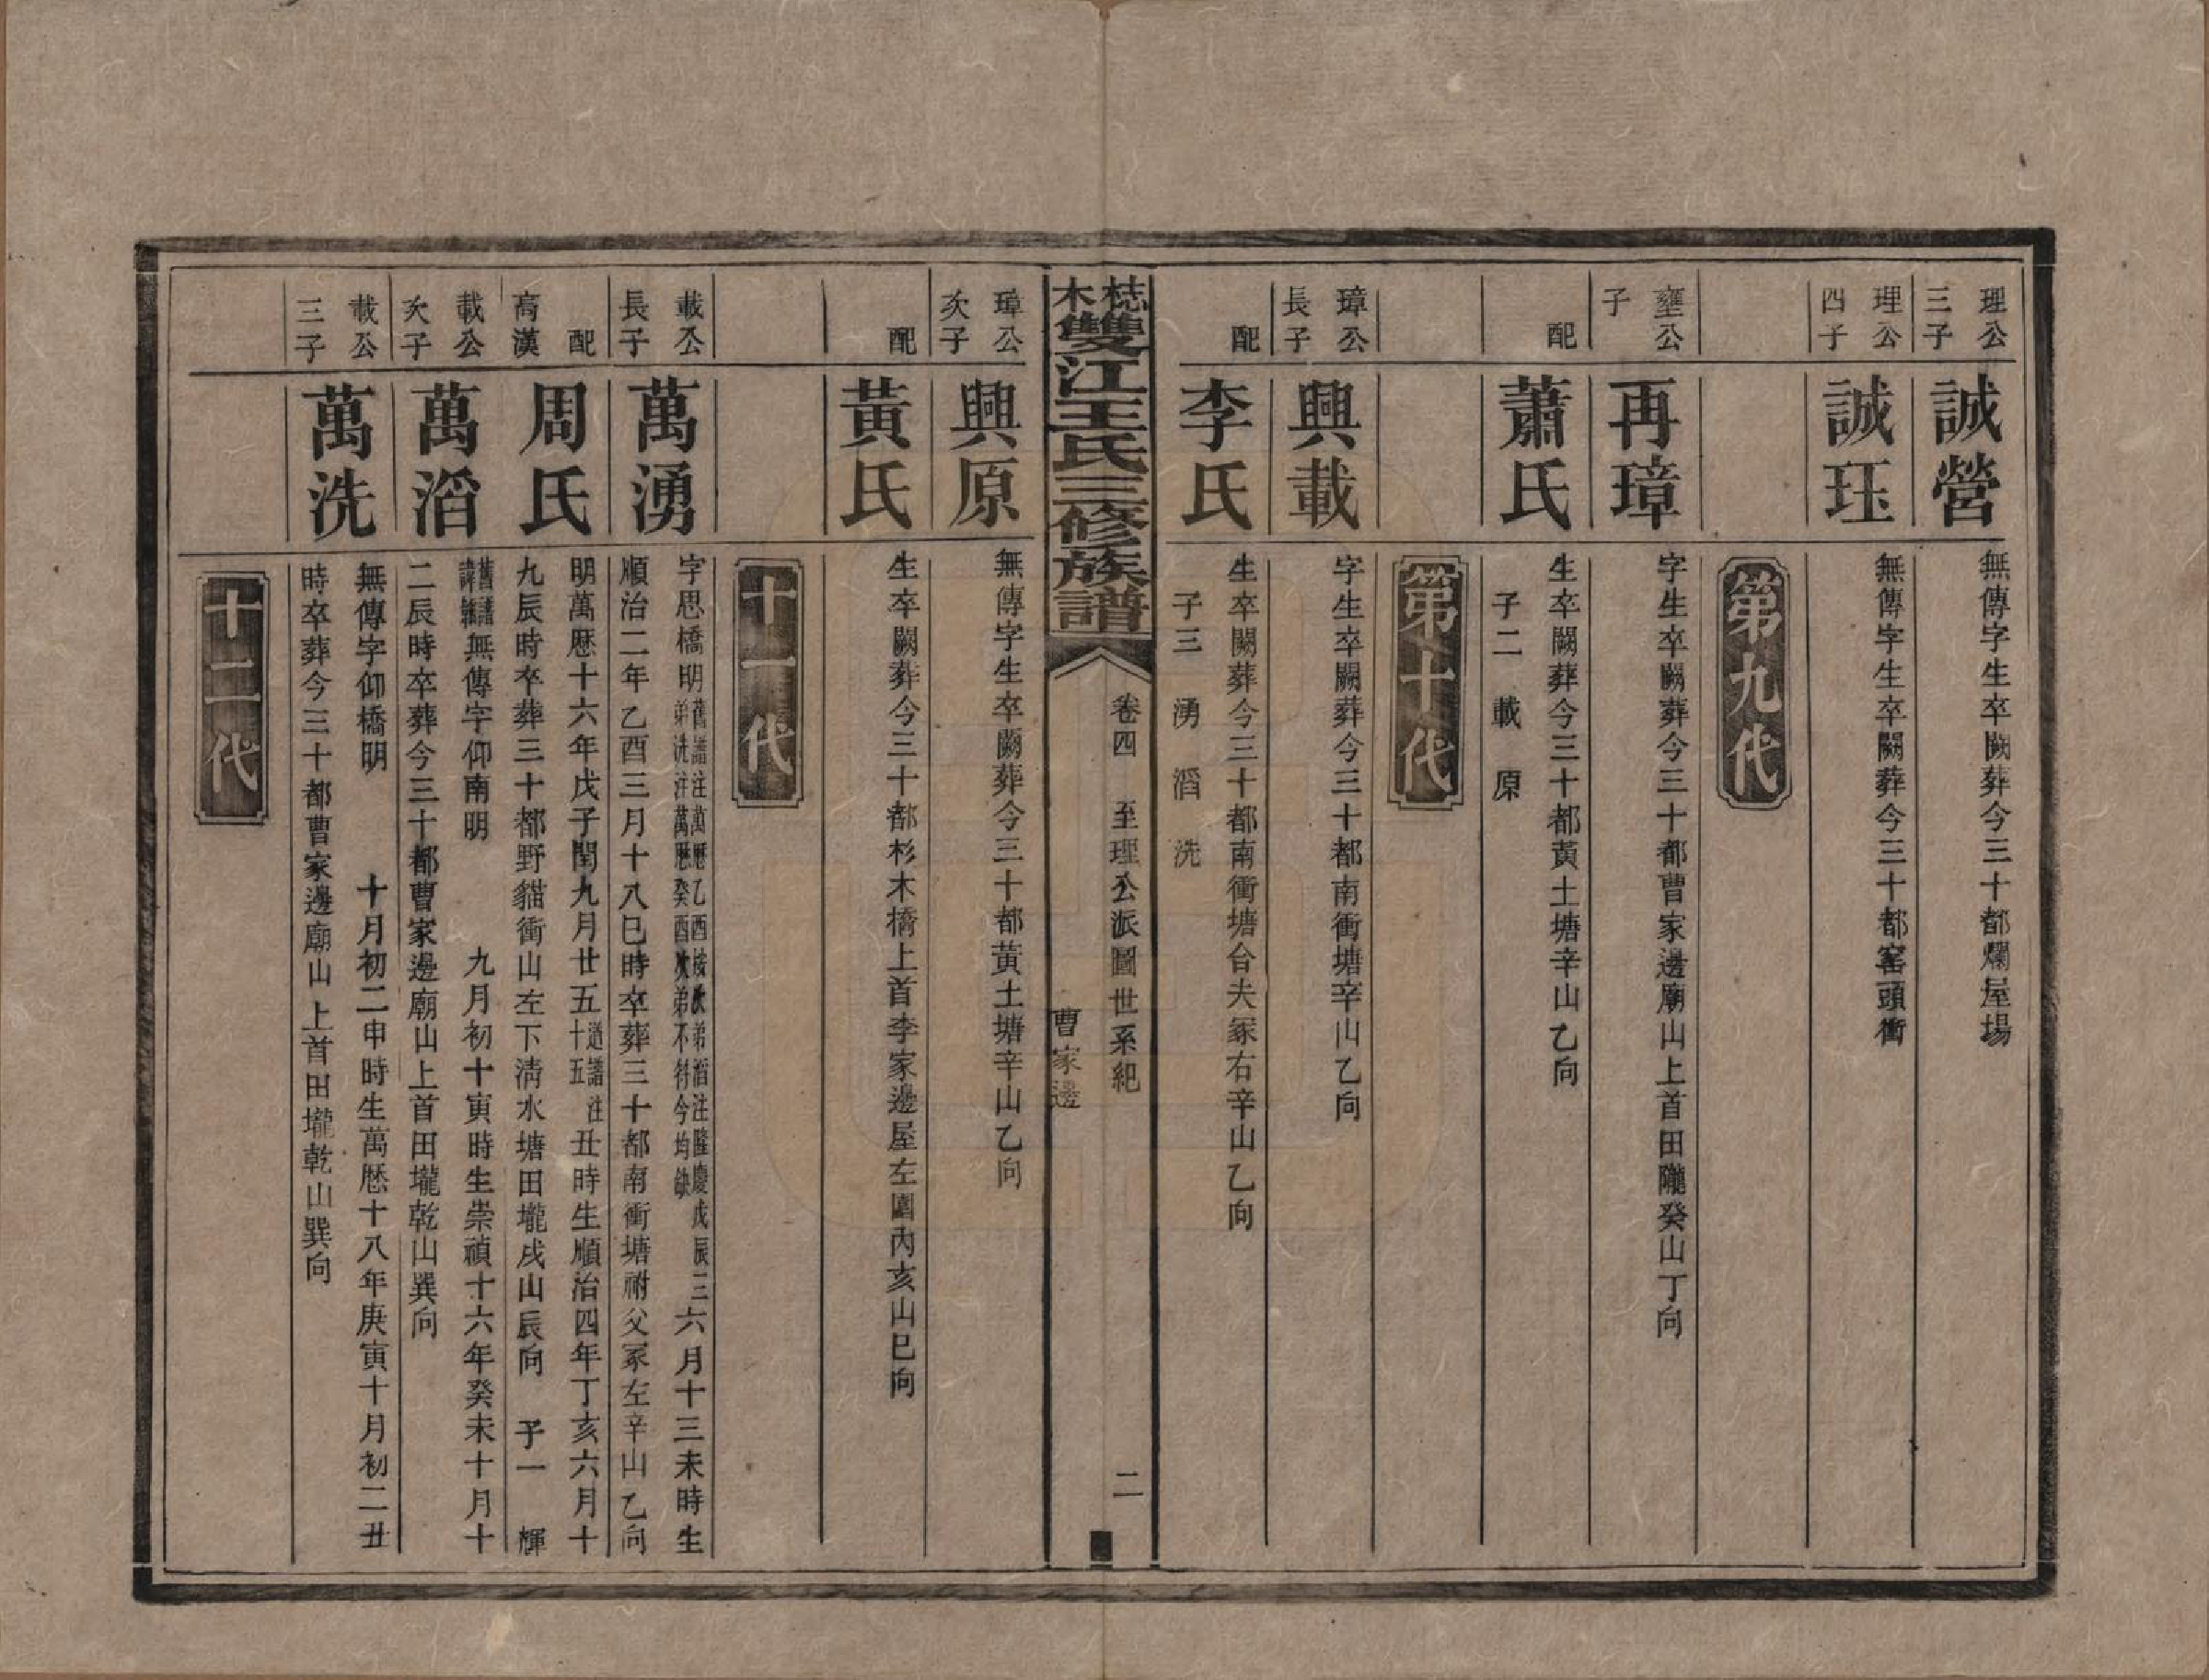 理公
三子
誠營
無傳字生卒闕葬今三十都爛屋場
理公
四子
誠珏
無傳字生卒闕葬今三十都窰頭衝
第九代
壅公
子
再璋
字生卒闕葬今三十都曹家邊廟山上首田隴癸山丁向
配
蕭氏
生卒闕葬今三十都黃土塘辛山乙向
子二 載 原
第十代
璋公
長子
興載
字生卒闕葬今三十都南衝塘辛山乙向
配
李氏
生卒闕葬今三十都南衝塘台夫冢右辛山乙向
子三 湧 滔 洗
梽木雙江王氏三修族譜
卷四 至理公派圖世系紀
曹家邊
二
璋公
次子
興原
無傳字生卒闕葬今三十都黃土塘辛山乙向
配
黃氏
生卒闕葬今三十都杉木橋上首李家邊屋左園內亥山巳向
十一代
載公
長子
萬湧
字思橋明舊譜注萬曆乙酉按次弟滔注隆慶戊辰三
弟洗注萬曆癸酉次弟不符今均缺
六月十三未時生
順治二年乙酉三月十八巳時卒葬三十都南衝塘祔父冢左辛山乙向
配
高漢
周氏
明萬曆十六年戊子閏九月廿五道譜注
十五
丑時生順治四年丁亥六月十
九辰時卒葬三十都野貓衝山左下淸水塘田壠戌山辰向 子一 輝
載公
次子
萬滔
舊譜
諱
無傳字仰南明 九月初十寅時生崇禎十六年癸未十月十
二辰時卒葬今三十都曹家邊廟山上首田壠乾山巽向
載公
三子
萬洗
無傳字仰橋明 十月初二申時生萬曆十八年庚寅十月初二丑
時卒葬今三十都曹家邊廟山上首田壠乾山巽向
十二代